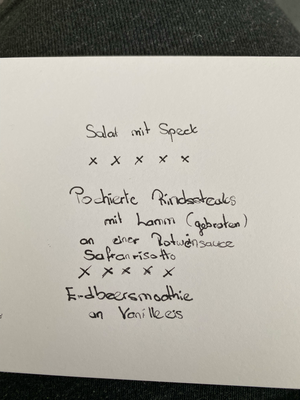 Salat mit Speck
x x x x x
Pochierte Rindssteaks
mit Lamm (gebraten)
an einer Rotweinsauce
Safranrisotto
x x x x x
Erdbeersmoothie
an Vanilleeis